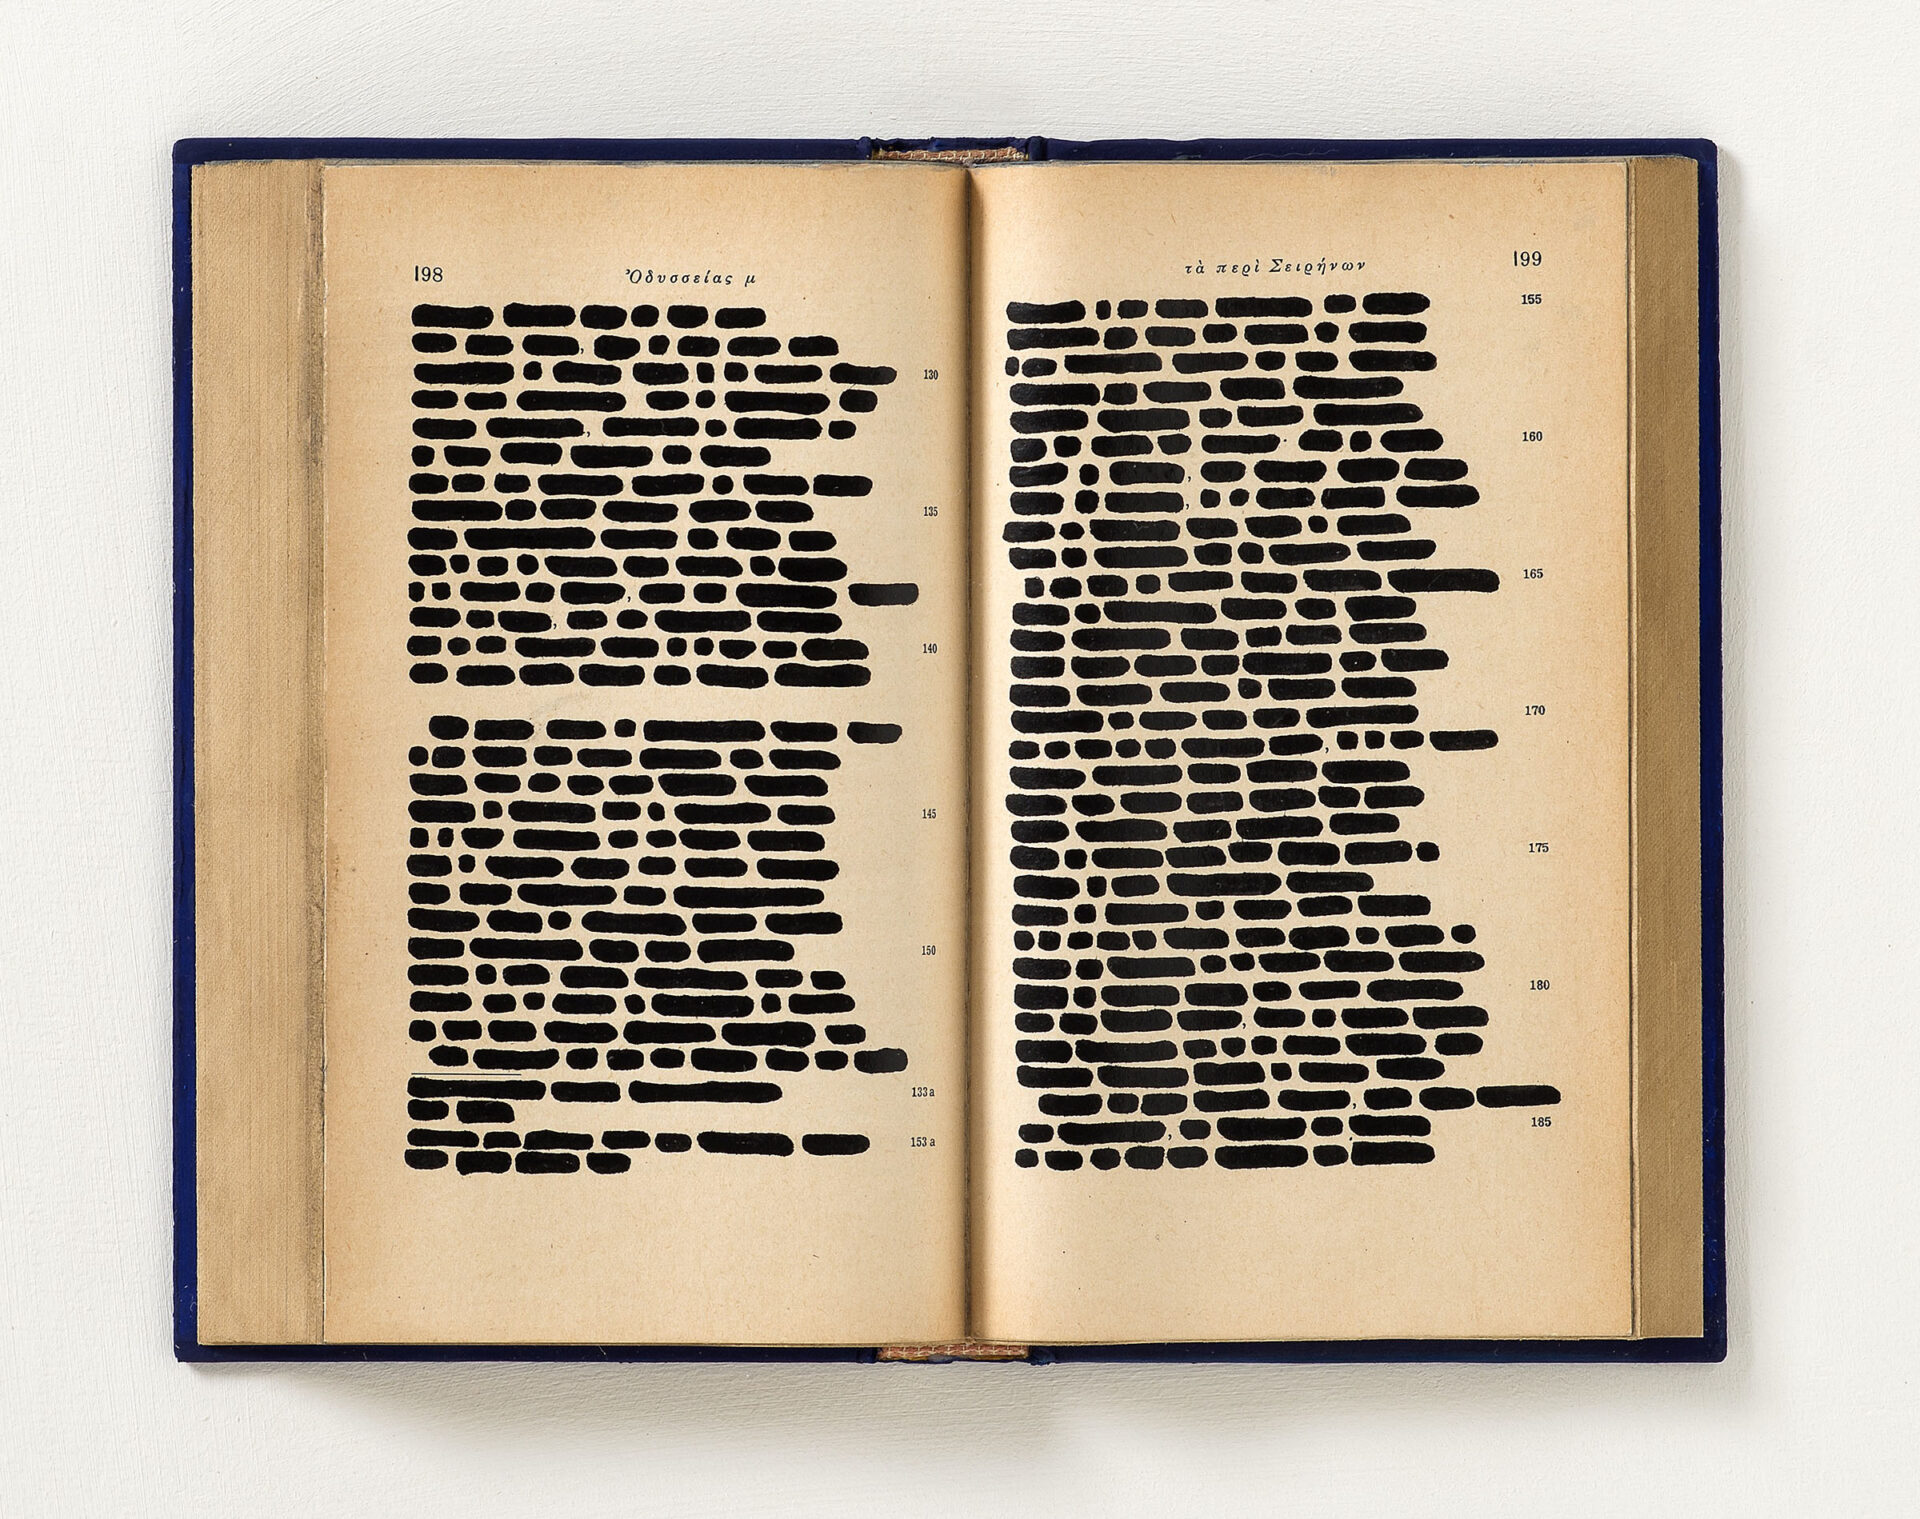 198
Ὀδυσσείας μ
130
135
140
145
150
133 a
153 a
τὰ περὶ Σειρήνων
199
155
160
165
170
175
180
185